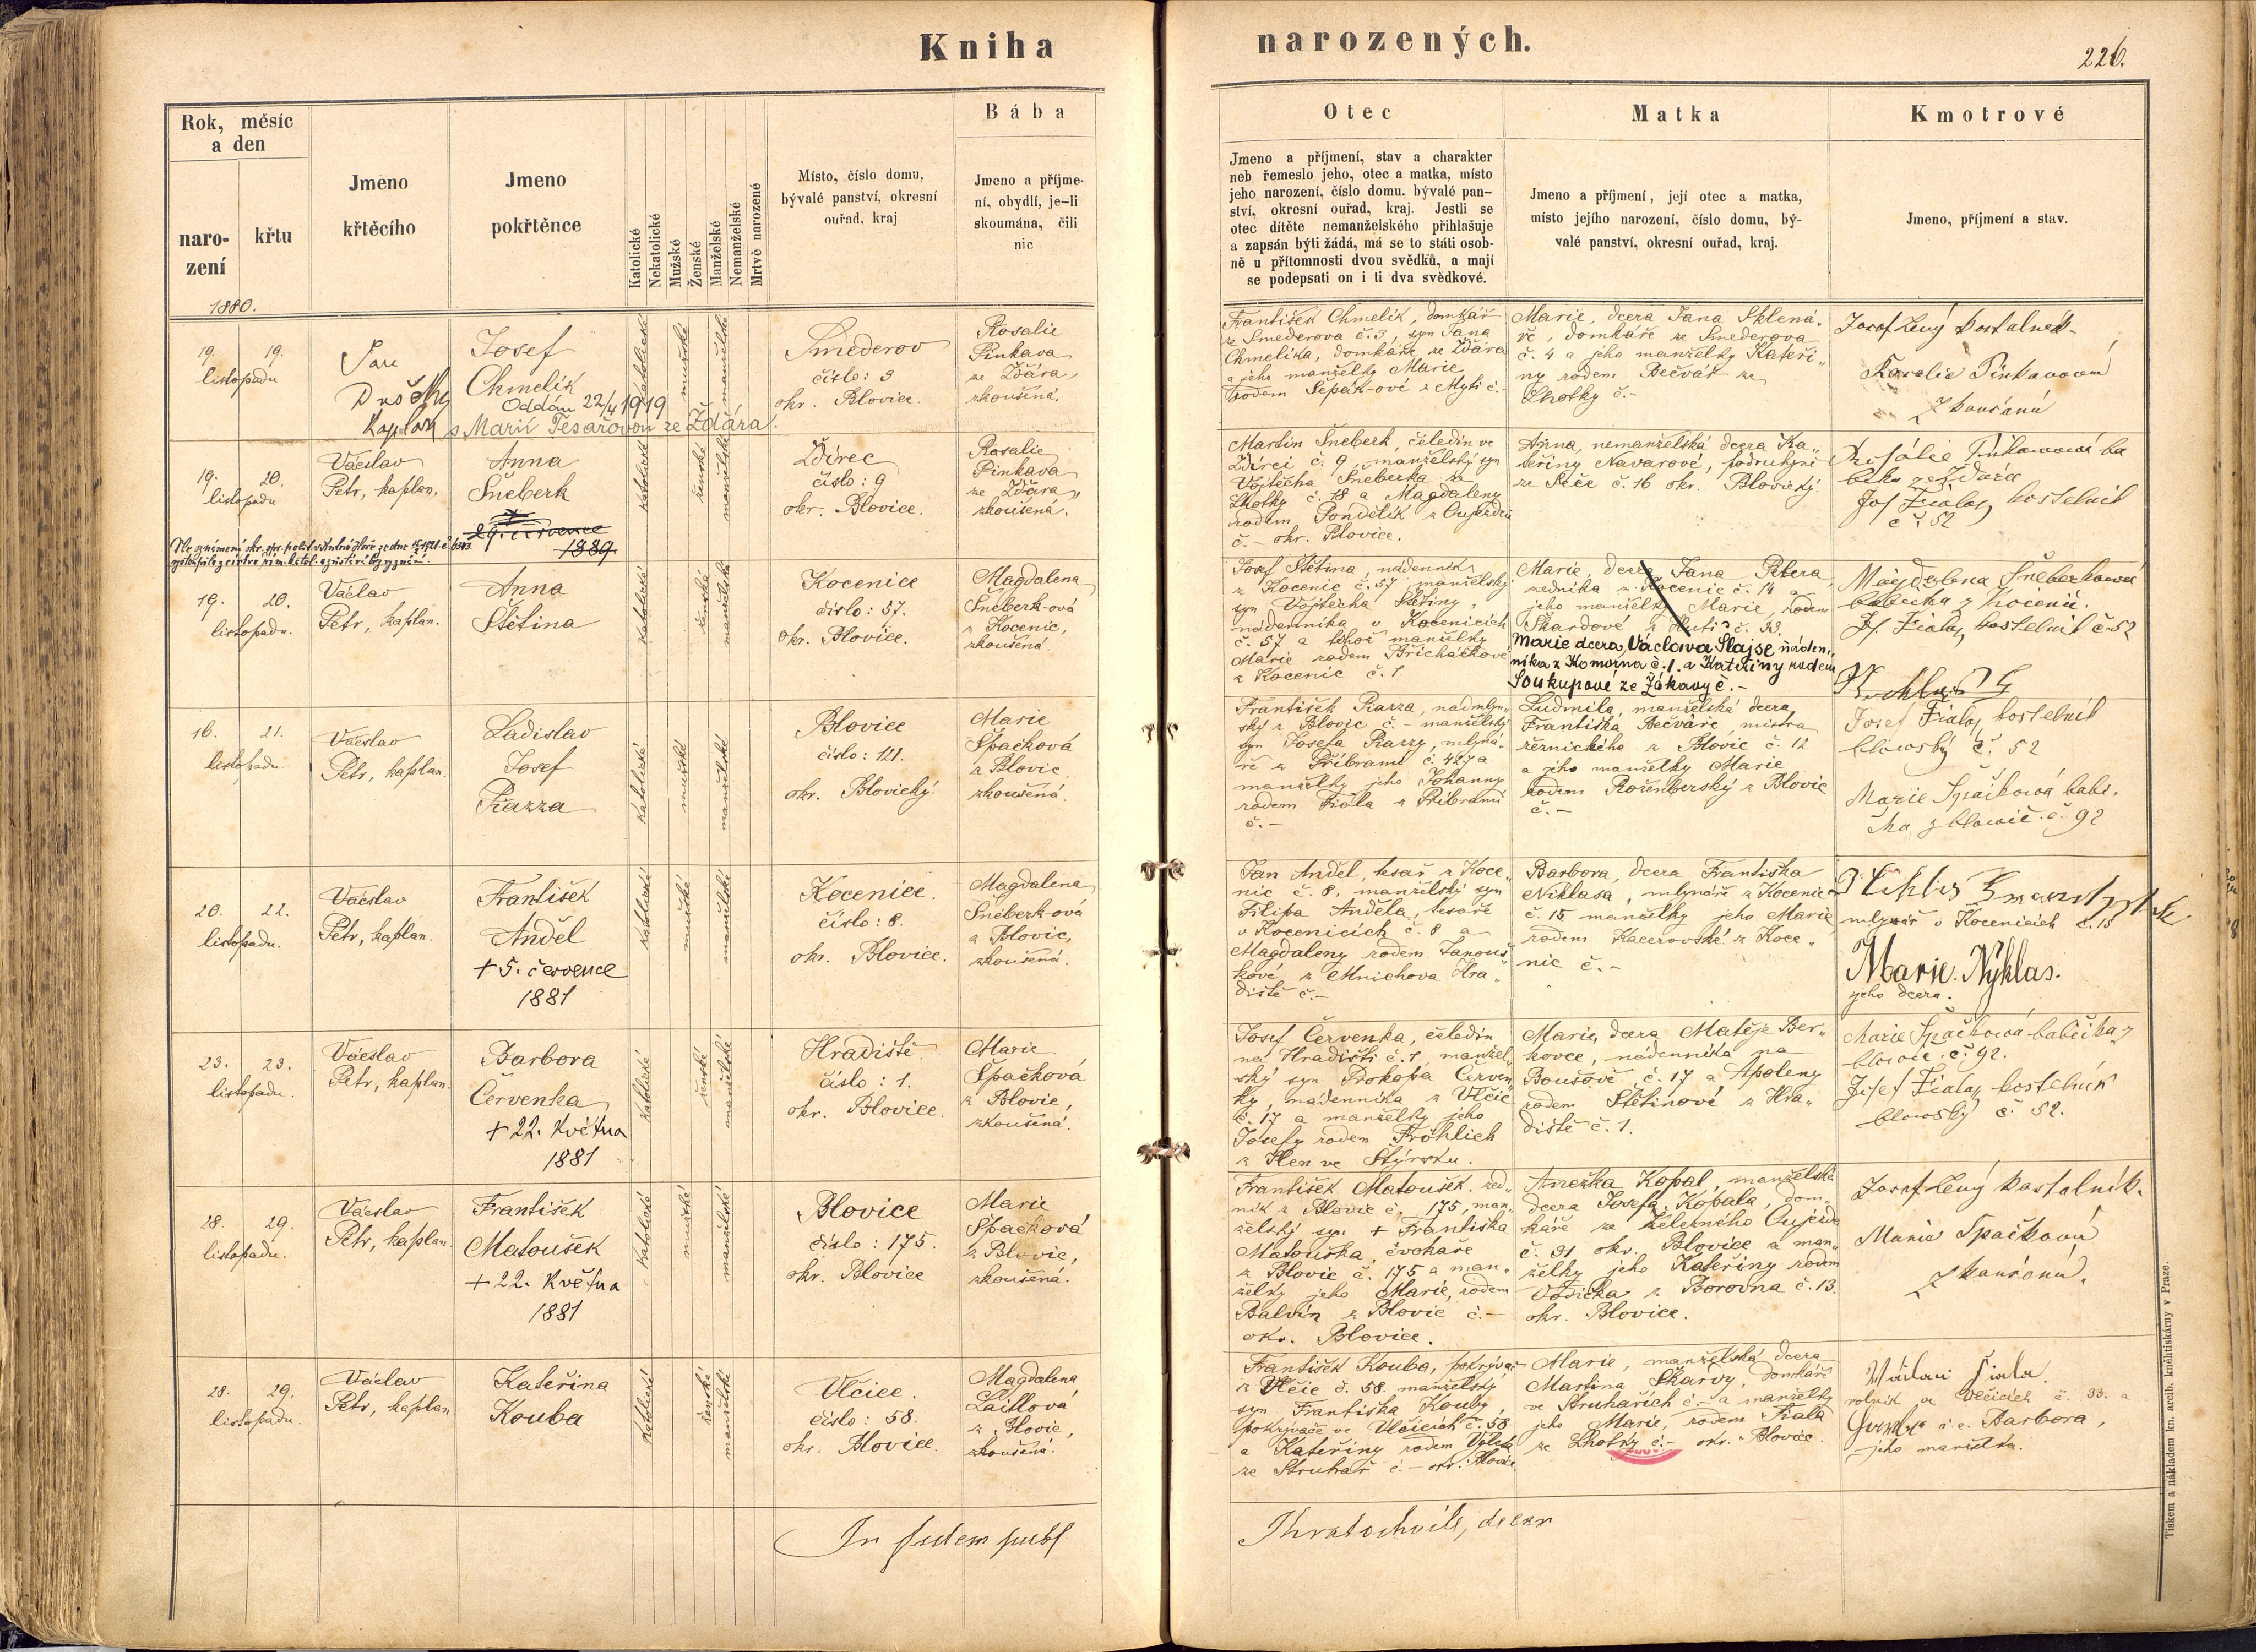 Kniha
narozených.
226.
Rok, měsíc
a den
naro-
zení
křtu
Jmeno
křtěcího
Jmeno
pokřtěnce
Katolické
Nekatolické
Mužské
Ženské
Manželské
Nemanželské
Mrtvě narozené
Místo, číslo domu,
bývalé panství, okresní
ouřad, kraj
Bába
Jmeno a příjme-
ní, obydlí, je-li
skoumána, čili
nic
Otec
Jmeno a příjmení, stav a charakter
neb řemeslo jeho, otec a matka, místo
jeho narození, číslo domu, bývalé pan-
ství, okresní ouřad, kraj. Jestli se
otec dítěte nemanželského přihlašuje
a zapsán býti žádá, má se to státi osob-
ně u přítomnosti dvou svědků, a mají
se podepsati on i ti dva svědkové.
Matka
Jmeno a příjmení, její otec a matka,
místo jejího narození, číslo domu, bý-
valé panství, okresní ouřad, kraj.
Kmotrové
Jmeno, příjmení a stav.
1880.
19. 19.
listopadu
Jan
Kaplan
Josef
Chmelík
Oddán 22/4 1919
s Marií Tesařovou ze Žďára.
katolické
mužské
manželské
Smederov
číslo: 3
okr. Blovice.
Rosalie
Pinkava
ze Ždára,
zkoušená.
František Chmelík, domkář
ze Smederova č. 3, syn Jana
Chmelíka, domkáře ze Ždára
a jeho manželky Marie
rodem Šepák-ové z Mýti č.-
Marie, dcera Jana Sklená-
ře, domkáře ze Smederova
č. 4 a jeho manželky Kateři-
ny rodem Bečvář ze
Lhotky č.-
Josef Lený kostelník
Rosalie Pinkavová
zkoušená
19. 20.
listopadu
Václav
Petr, kaplan.
Anna
Šneberk
29. července
1889.
katolické
ženské
manželské
Ždírec
číslo: 9
okr. Blovice.
Rosalie
Pinkava
ze Ždára,
zkoušená.
Martin Šneberk, čeledín ve
Ždírci č. 9, manželský syn
Vojtěcha Šneberka ze
Lhotky č. 18 a Magdaleny
rodem Pondělík z Oujezdu
č. - okr. Blovice.
Anna, nemanželská dcera Ka-
teřiny Navarové, podruhyně
ze Seče č. 16 okr. Blovický.
Rosálie Pinkawová ba
bka ze Ždára
Jos Fiala, kostelník
č 52
19. 20.
listopadu.
Václav
Petr, kaplan.
Anna
Štětina
katolické
ženské
manželské
Kocenice
číslo: 57.
okr. Blovice.
Magdalena
Šneberk-ová
z Kocenic,
zkoušená.
Josef Štětina nádenník
z Kocenic č. 57 manželský
syn Vojtěcha Štětiny,
nádenníka v Kocenicích
č. 57 a téhož manželky
Marie rodem Břicháčkové
z Kocenic č. 1.
Marie, dcera Jana Petera,
zedníka z Kocenic č. 14 a
jeho manželky Marie, rodem
Škardové z Huti č. 33.
Marie dcera Václava Slajse náden-
níka z Komorna č. 1. a Kateřiny rodem
Soukupové ze Žákavy č. -
Magdalena Šneberková
babička z Kocenic.
Jos. Fiala, kostelník č 52
16. 21.
listopadu.
Václav
Petr, kaplan.
Ladislav
Josef
Piazza
katolické
mužské
manželské
Blovice
číslo: 121.
okr. Blovický.
Marie
Špačková
z Blovic
zkoušená.
František Piazza, nadmlyn-
ský z Blovic č. - manželský
syn Josefa Piazzy, mlyná-
ře z Příbrami č. 427 a
manželky jeho Johanny
rodem Fiala z Příbrami
č. -
Ludmila, manželská dcera
Františka Bečváře, mistra
řeznického z Blovic č. 12
a jeho manželky Marie
rodem Roženberský z Blovic
č. -
Josef Fiala, kostelník
blowský č. 52
Marie Špačková babi-
čka z blowic č. 92
20. 22.
listopadu.
Václav
Petr, kaplan.
František
Anděl
+ 5. července
1881
katolické
mužské
manželské
Kocenice.
číslo: 8.
okr. Blovice.
Magdalena
Šneberk-ová
z Blovic,
zkoušená.
Jan Anděl, tesař z Koce-
nic č. 8, manželský syn
Filipa Anděla, tesaře
v Kocenicích č. 8 a
Magdaleny rodem Janouš-
kové z Mnichova Hra-
diště č. -
Barbora, dcera Františka
Niklasa, mlynáře z Kocenic
č. 15 manželky jeho Marie
rodem Kacerovské z Koce-
nic č. -
mlynář v Kocenicích č. 15
Marie. Nyklas.
jeho dcera.
23. 23.
listopadu.
Václav
Petr, kaplan.
Barbora
Červenka
+ 22. Května
1881
katolické
ženské
manželské
Hradiště.
číslo: 1.
okr. Blovice.
Marie
Špačková
z Blovic,
zkoušená.
Josef Červenka, čeledín
na Hradišti č. 1, manžel-
ský syn Prokopa Červen-
ky, nádenníka z Vlčic
č. 17 a manželky jeho
Josefy rodem Fröhlich
z Hlen ve Štýrsku.
Marie, dcera Matěje Ber-
kovce, nádenníka na
Boušově č. 17 a Apoleny
rodem Štětinové z Hra-
diště č. 1.
Marie Špačková babička z
blowic č. 92.
Josef Fiala, kostelník
blowský č. 52.
28. 29.
listopadu.
Václav
Petr, kaplan.
František
Matoušek
+ 22. Května
1881
katolické
mužské
manželské
Blovice
číslo: 175.
okr. Blovice
Marie
Špačková
z Blovic,
zkoušená.
František Matoušek, zed-
ník z Blovic č. 175, man-
želský syn + Františka
Matouška, cvokaře
z Blovic č. 175 a man-
želky jeho Marie, rodem
Balvín z Blovic č. -
okr. Blovice.
Anežka Kopal, manželská
dcera Josefa Kopala, dom-
káře ze Železného Oujezda
č. 31 okr. Blovice a man-
želky jeho Kateřiny rodem
Vodička z Borovna č. 13.
okr. Blovice.
Josef Lený kostelník.
Marie Špačková
zkoušená.
28. 29.
listopadu.
Václav
Petr, kaplan
Kateřina
Kouba
katolické
ženské
manželské
Vlčice.
číslo: 58.
okr. Blovice.
Magdalena
Laitlová
z Blovic,
zkoušená.
František Kouba, pokrývač
z Vlčic č. 58. manželský
syn Františka Kouby,
pokrývače ve Vlčicích č. 58
a Kateřiny rodem Voleta
ze Struhař č. - okr. Blovice.
Marie, manželská dcera
Martina Škardy, domkáře
ve Struhařích č. - a manželky
jeho Marie, rodem Fiala
ze Lhotky č. - okr. Blovice.
Václav Fiala.
rolník ve Vlčicích č. 33. a
Barbora,
jeho manželka.
In fidem publ
Kratochvile, decan
Tiskem a nákladem kn. arcib. kněhtiskárny v Praze.